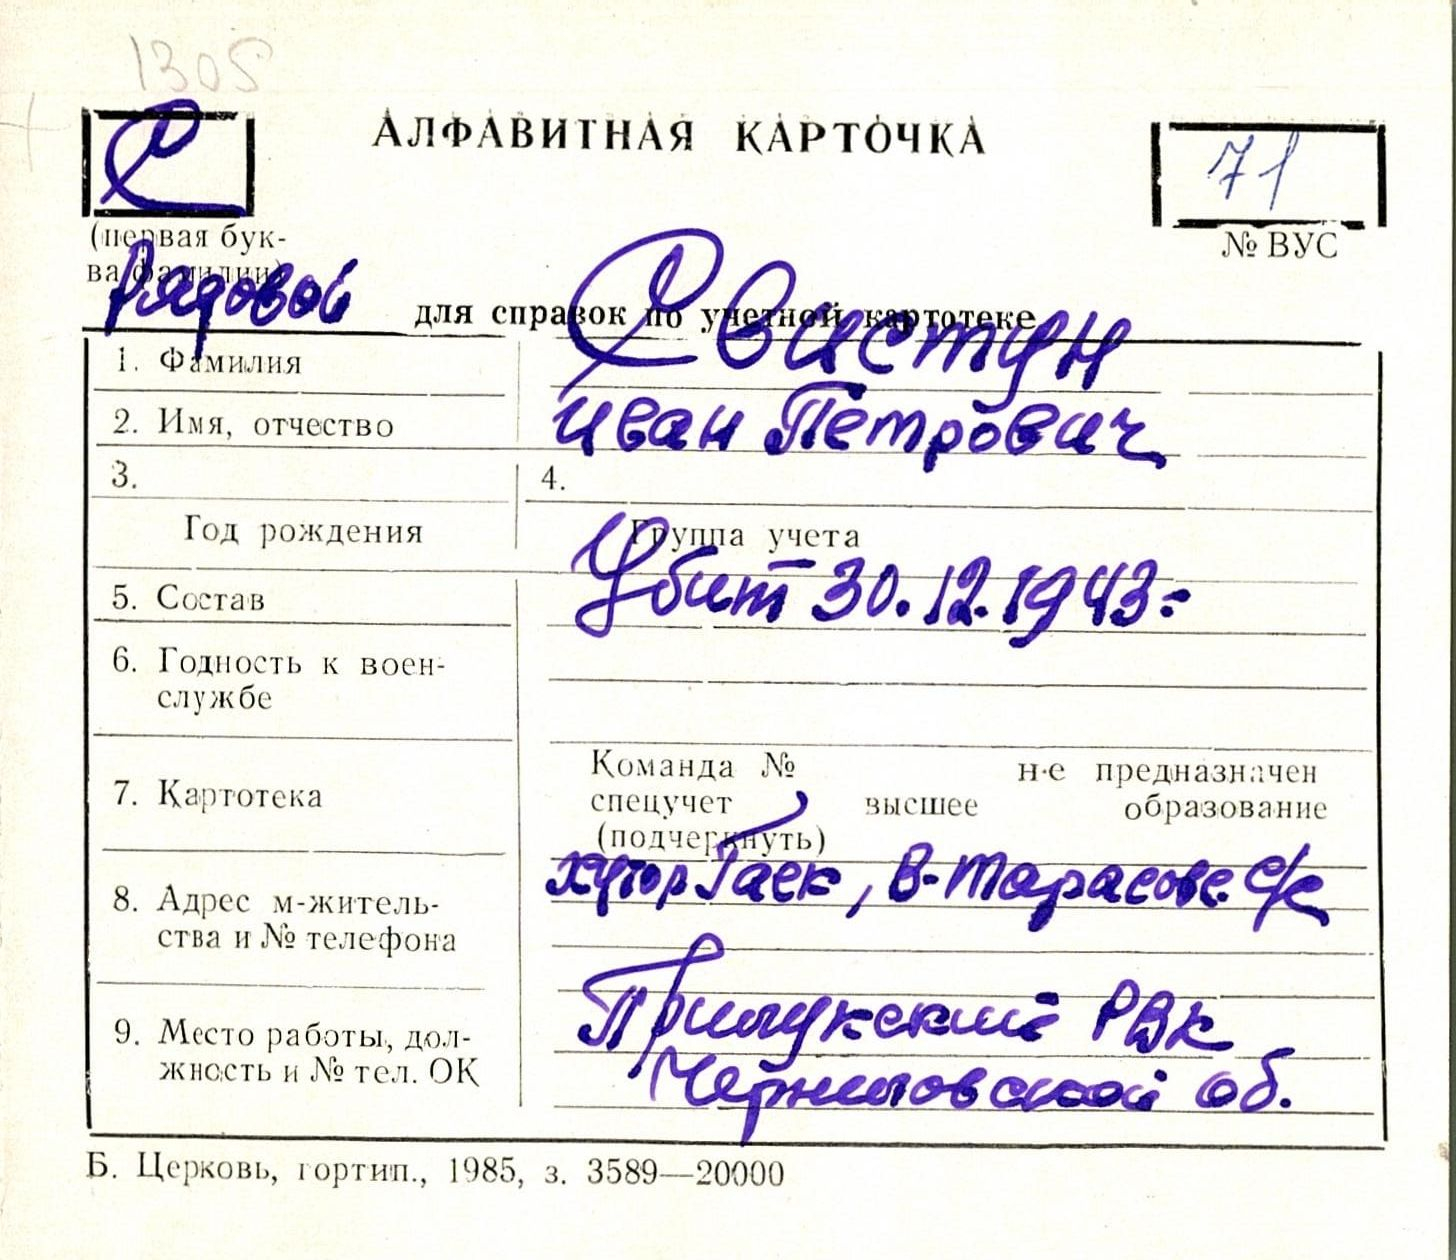 1305
С
АЛФАВИТНАЯ КАРТОЧКА
71
(первая бук-
ва фамилии)
№ ВУС
Рядовой
для справок по учетной картотеке
1. Фамилия
Свистун
2. Имя, отчество
Иван Петрович
3.
4.
Год рождения
Группа учета
Убит 30.12.1943г
5. Состав
6. Годность к воен-
службе
7. Картотека
Команда №
не предназначен
спецучет высшее образование
(подчеркнуть)
хутор Гаек, В-Тарасовс. с/с
8. Адрес м-житель-
ства и № телефона
9. Место работы, дол-
жность и № тел. ОК
Прилукский РВК
Черниговской об.
Б. Церковь, гортип., 1985, з. 3589—20000